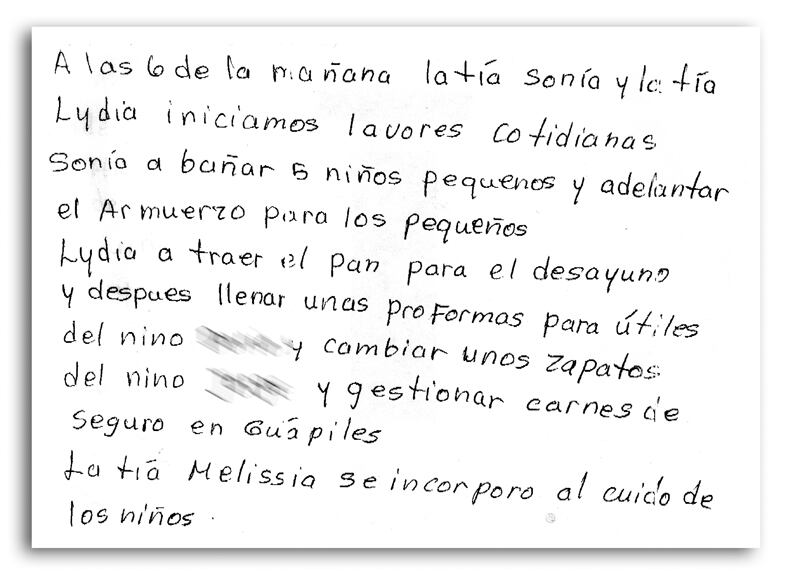 A las 6 de la mañana la tía Sonía y la tía
Lydia iniciamos lavores cotidianas
Sonía a bañar 5 niños pequenos y adelantar
el Armuerzo para los pequeños
Lydia a traer el pan para el desayuno
y despues llenar unas proformas para útiles
del nino y cambiar unos zapatos
del nino y gestionar carnes de
seguro en Guápiles
La tía Melissia se incorporo al cuido de
los niños.